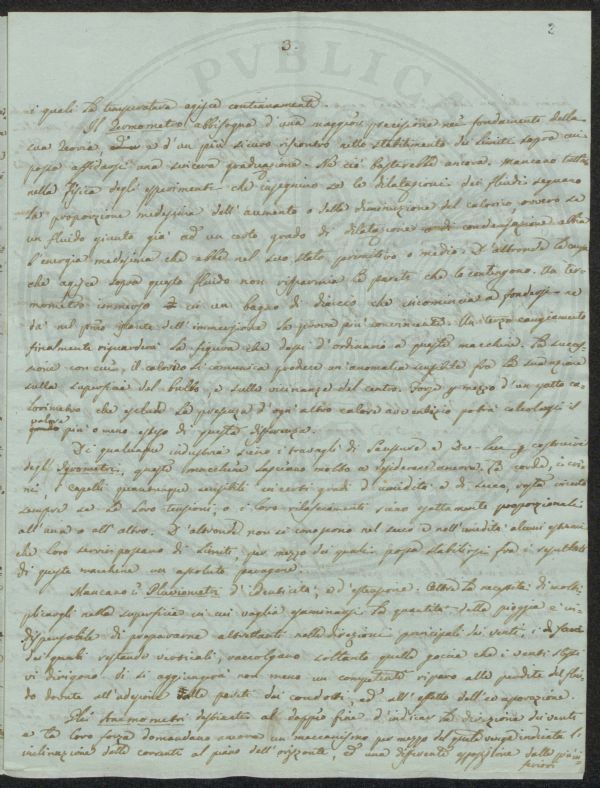 2
3.
i quali la temperatura agisce continuamente.
Il Termometro abbisogna d'una maggior precisione nei fondamenti della
sua teoria, e d'un più sicuro riscontro nello stabilimento dei limiti sopra cui
possa affidarsi una sincera graduazione. Nè ciò basterebbe ancora. Mancano tutta
nella Fisica degli esperimenti che insegnino se le dilatazioni dei fluidi seguano
la proporzione medesima dell'aumento o della diminuzione del calorico ovvero se
un fluido giunto già ad un certo grado di dilatazione o di condensazione abbia
l'energia medesima che ebbe nel suo stato primitivo o medio. D'altronde la causa
che agisce sopra questo fluido non risparmia le pareti che lo contengono. Un ter-
mometro immerso in un bagno di diaccio che incomincia a fondersi ne
dà nel primo istante dell'immersione la prova più convincente. Un terzo cangiamento
finalmente riguarderà la figura che dassi d'ordinario a queste macchine. La succes-
sione con cui il calorico si comunica produce un'anomalia sensibile fra le
sulla superficie del bulbo, e sulla vicinanza del centro. Forse p mezzo d'un esatto ca-
lorimetro che escluda la presenza d'ogni altro calore avventizio potrà calcolarsi il
valore più o meno esteso di questa differenza.
Di qualunque industria sieno i travagli di Saussure e De Luc p costruire
degli Igrometri, queste macchine lasciano molto a desiderare ancora. Le corde, i cri-
ni, i capelli quantunque sensibili in certi gradi d'umidità e di secco, resta incerto
sempre se le loro tensioni, o i loro rilasciamenti siano esattamente proporzionali
all'una o all'altro. D'altronde non si conoscono nel secco e nell'umidità alcuni estremi
che loro servir possano di limiti, per mezzo dei quali possa stabilirsi fra i risultati
di queste macchine un assoluto paragone.
Mancano i Pluviometri d'identicità, e d'estensione. Oltre la necessità di molti-
plicargli nella superficie in cui voglia esaminarsi la quantità della pioggia è in-
dispensabile di prepararne altrettanti nelle direzioni principali dei venti,
dei quali restando verticali, raccolgano soltanto quelle gocce che i venti stessi
vi dirigono. Vi si aggiungerà non meno un competente riparo alle perdite del flui-
do dovute all'adesione delle pareti dei condotti, ed all'effetto dell'evaporazione.
Gli Anemometri destinati al doppio fine d'indicar la direzione dei venti
e la loro forza domandano ancora un meccanismo per mezzo del quale venga indicata l'
inclinazione delle correnti al piano dell'orizzonte, ed una differente opposizione dalle più in-
feriori
PVBLICA